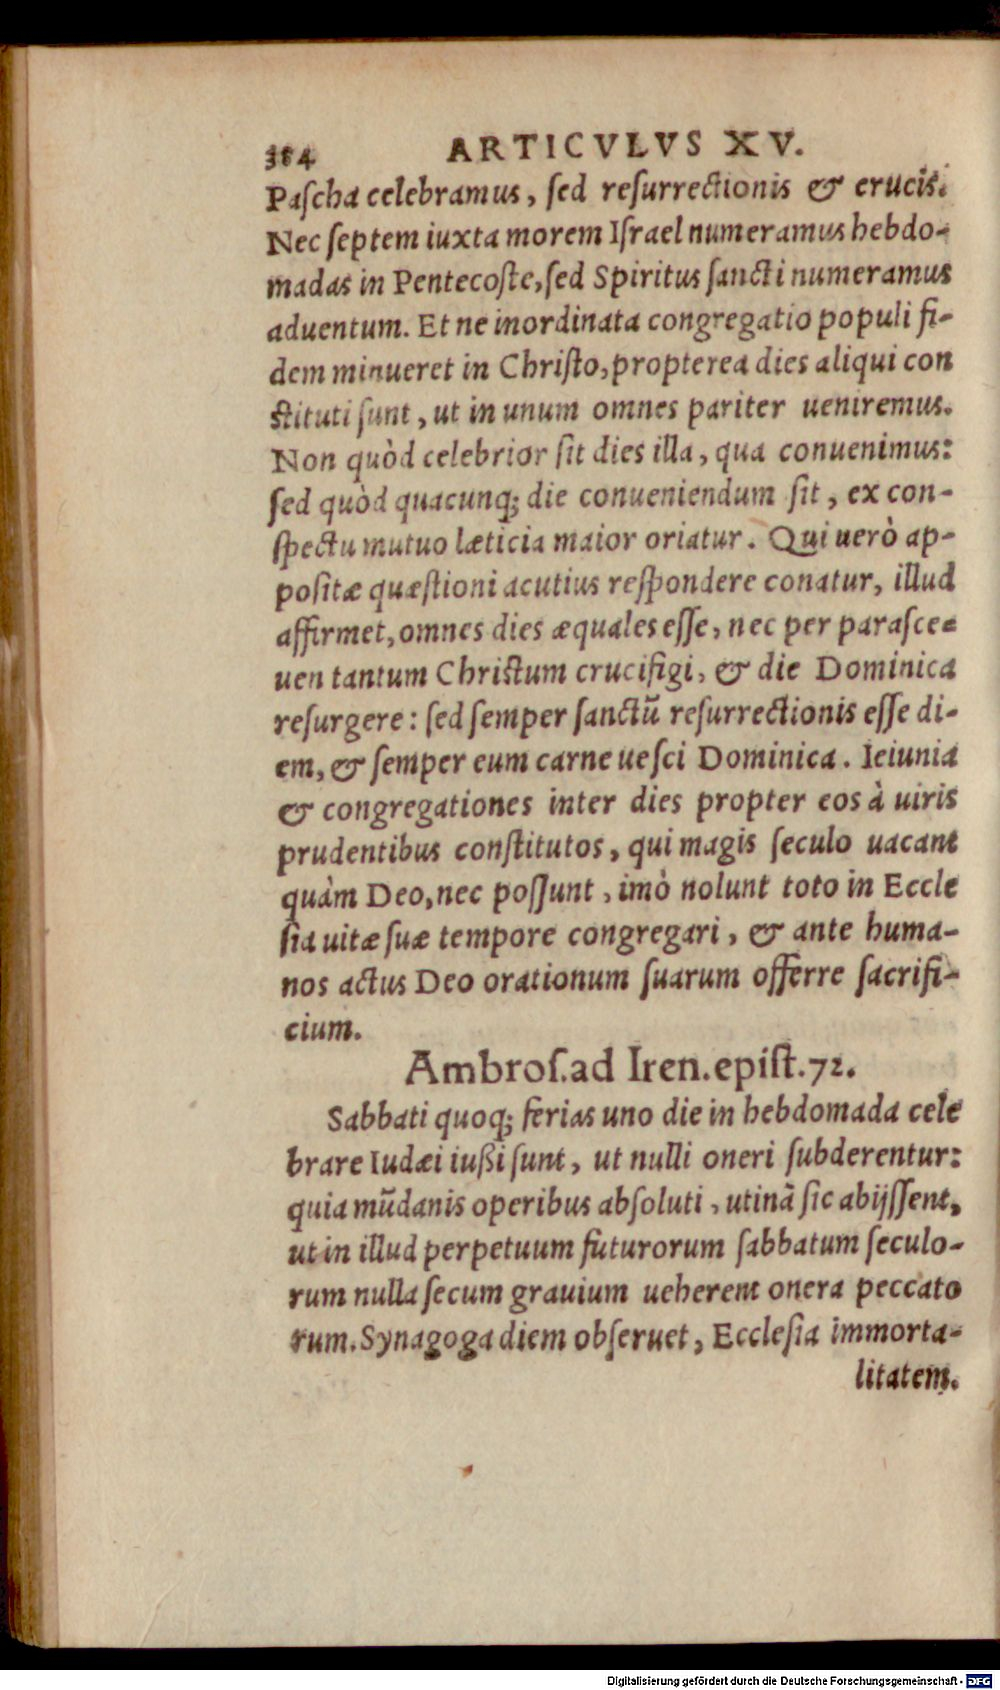 384 ARTICVLVS XV.
Paſcha celebramus, ſed reſurrectionis & crucis.
Nec ſeptem iuxta morem Iſrael numeramus hebdo-
madas in Pentecoſte, ſed Spiritus ſancti numeramus
aduentum. Et ne inordinata congregatio populi fi-
dem minueret in Chriſto, propterea dies aliqui con
ſtituti ſunt, ut in unum omnes pariter ueniremus.
Non quòd celebrior ſit dies illa, qua conuenimus:
ſed quòd quacunq; die conueniendum ſit, ex con-
ſpectu mutuo læticia maior oriatur. Qui uerò ap-
poſitæ quæſtioni acutius reſpondere conatur, illud
affirmet, omnes dies æquales eſſe, nec per paraſce-
uen tantum Chriſtum crucifigi, & die Dominica
reſurgere: ſed ſemper ſanctũ reſurrectionis eſſe di-
em, & ſemper eum carne ueſci Dominica. Ieiunia
& congregationes inter dies propter eos à uiris
prudentibus conſtitutos, qui magis ſeculo uacant
quàm Deo, nec poſſunt, imò nolunt toto in Eccle
ſia uitæ ſuæ tempore congregari, & ante huma-
nos actus Deo orationum ſuarum offerre ſacrifi-
cium.
Ambroſ. ad Iren. epiſt. 72.
Sabbati quoq; ferias uno die in hebdomada cele
brare Iudæi iußi ſunt, ut nulli oneri ſubderentur:
quia mũdanis operibus abſoluti, utinã ſic abijſſent,
ut in illud perpetuum futurorum ſabbatum ſeculo-
rum nulla ſecum grauium ueherent onera peccato
rum. Synagoga diem obſeruet, Eccleſia immorta-
litatem.
Digitalisierung gefördert durch die Deutsche Forschungsgemeinschaft - DFG